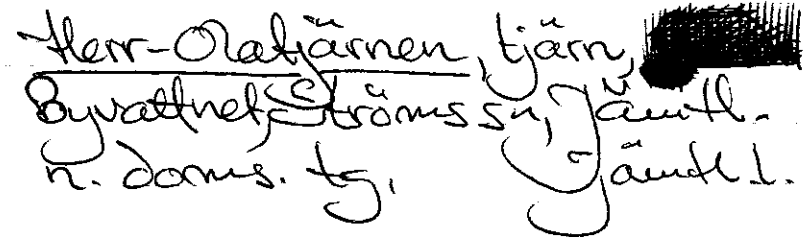 Herr-Olatjärnen, tjärn,
Byvattnet, Ströms sn, Jämtl.
n. doms. tg. Jämtl l.